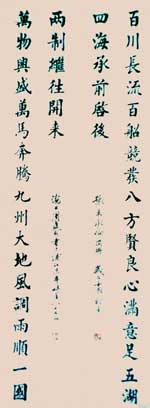 百川長流百船競發八方賢良心滿意足五湖
四海承前啓後
萬物興盛萬馬奔騰九州大地風調雨順一國
兩制繼往開来